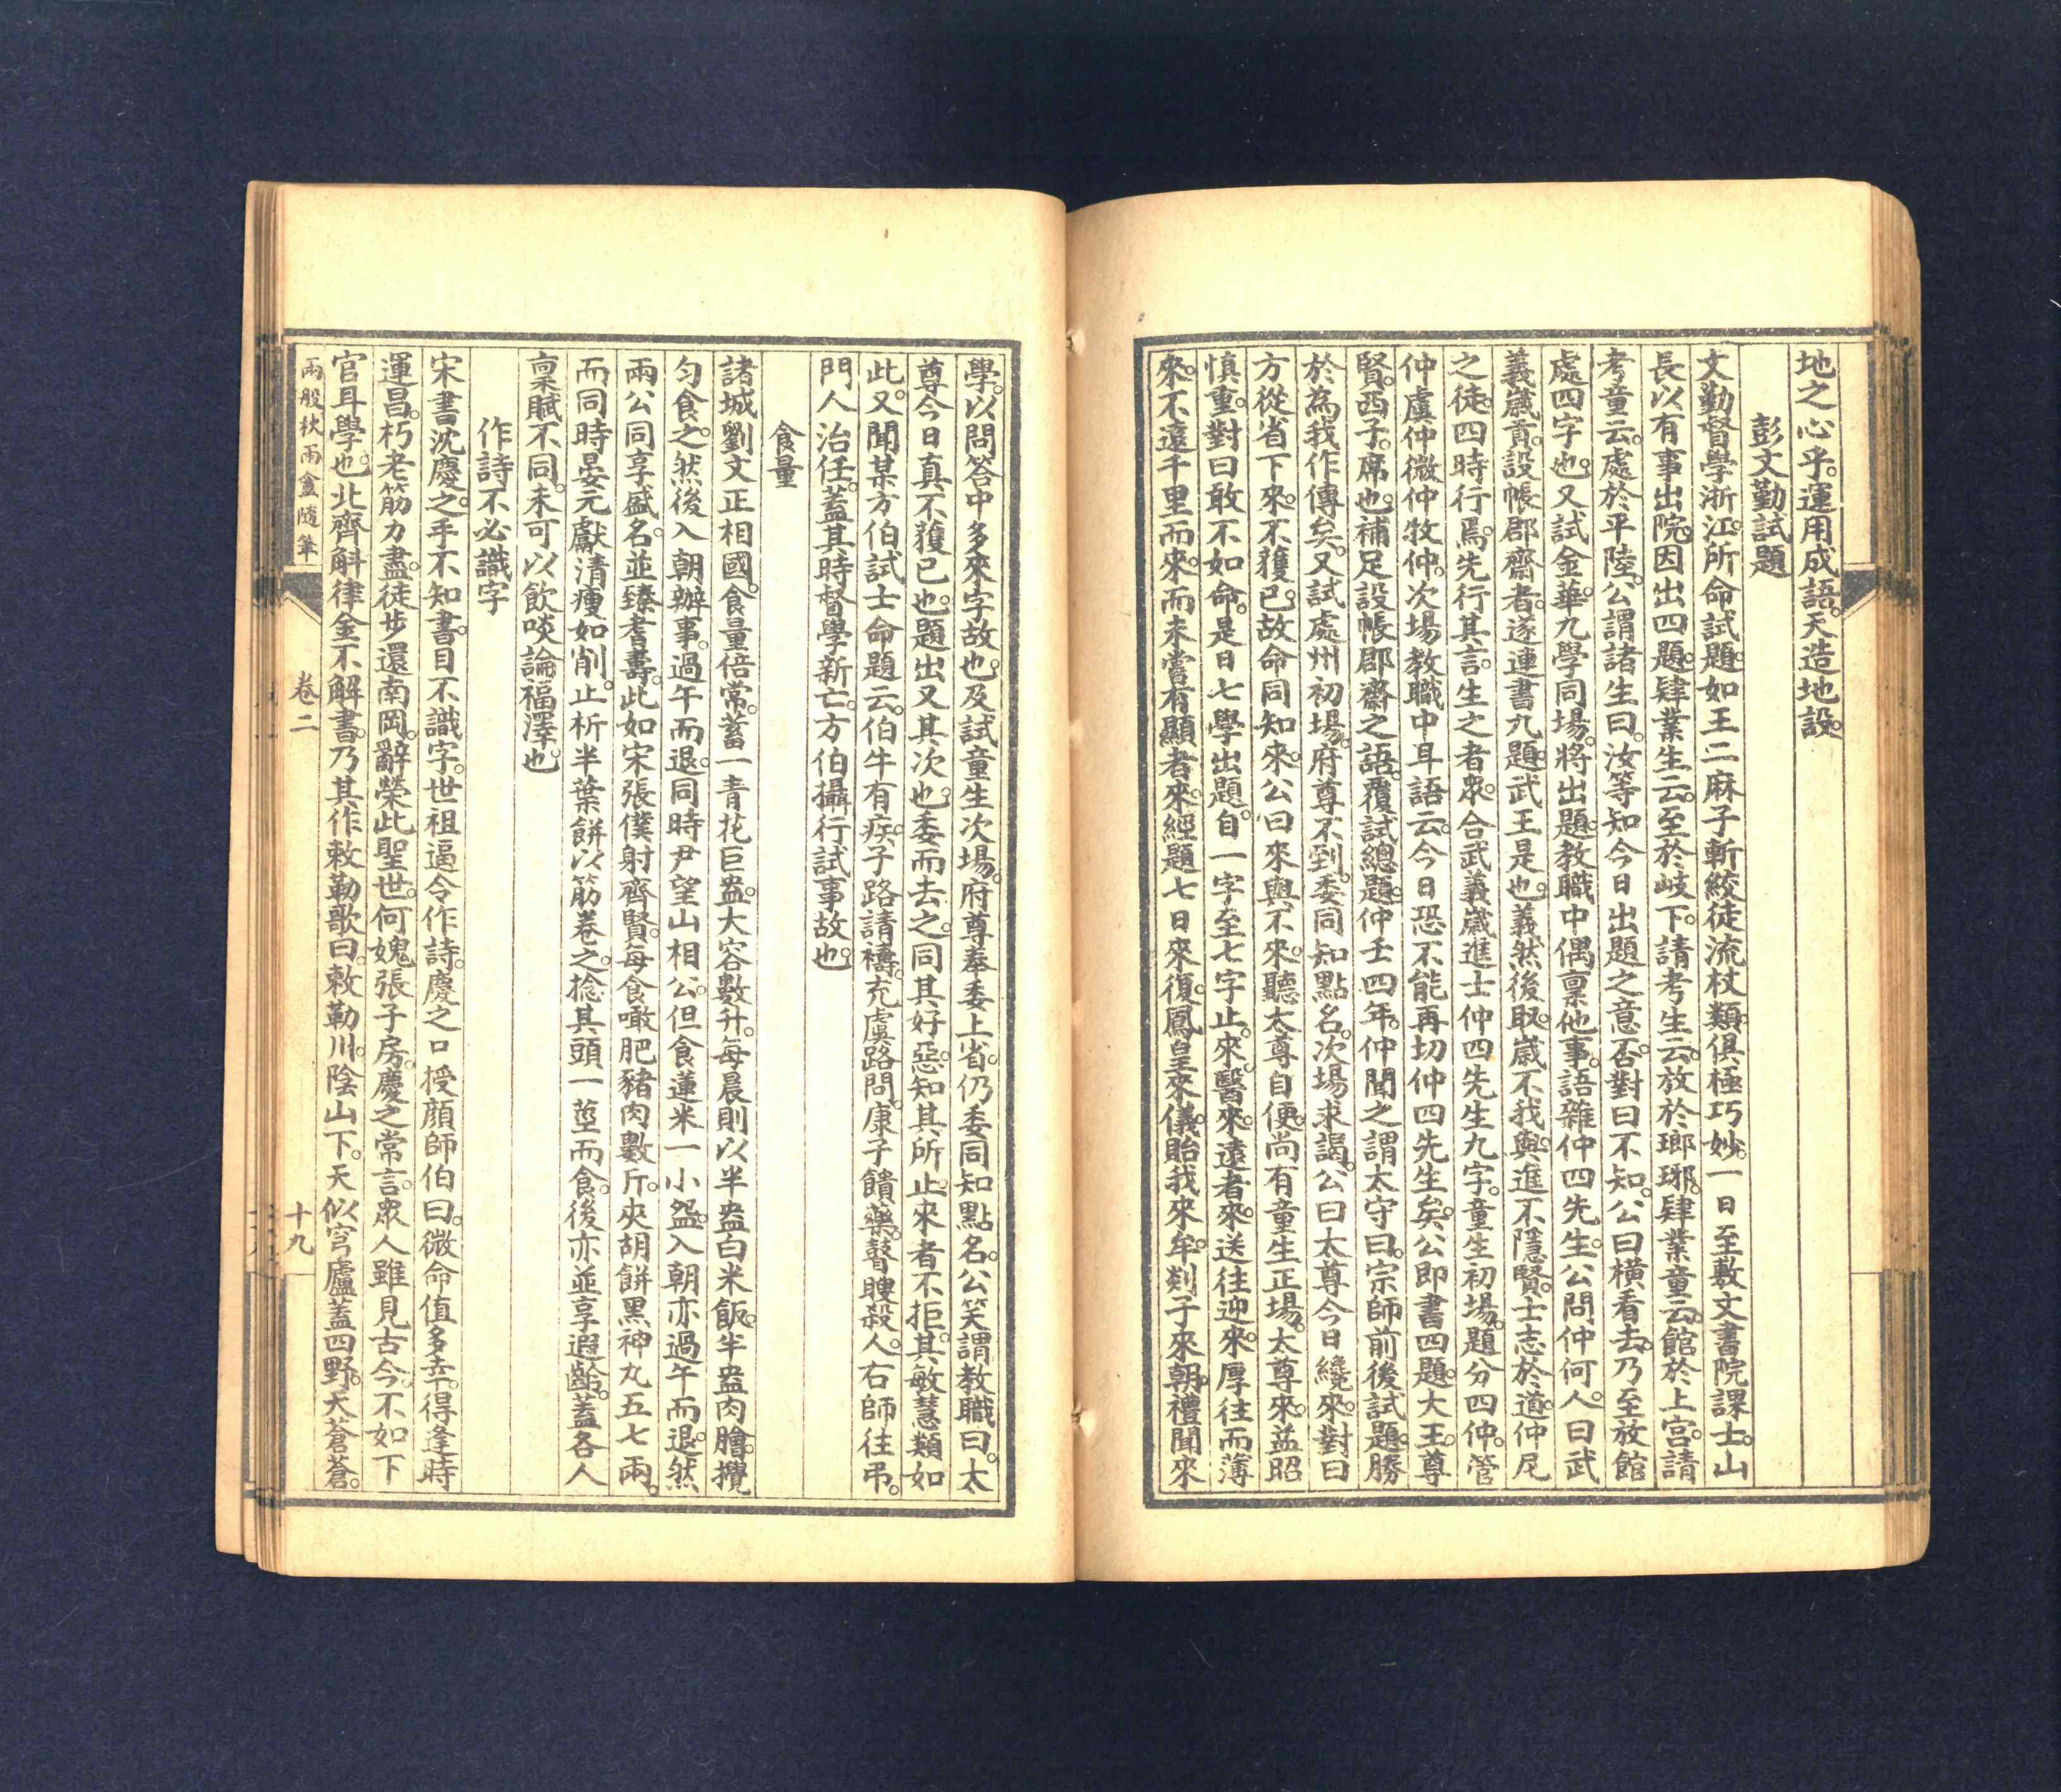 地之心乎。運用成語。天造地設。
彭文勤試題
文勤督學浙江。所命試題。如王二麻子斬絞徒流杖類。俱極巧妙。一日至敷文書院課士。山
長以有事出院。因出四題。肄業生云。至於岐下。請考生云。放於瑯琊。肄業童云。館於上宮。請
考童云。處於平陸。公謂諸生曰。汝等知今日出題之意否。對曰不知。公曰橫看去。乃至放館
處四字也。又試金華九學同場。將出題。教職中偶稟他事。語雜仲四先生。公問仲何人。曰武
義歲貢。設帳郡齋者。遂連書九題。武王是也。義然後取。歲不我與。進不隱賢。士志於道。仲尼
之徒。四時行焉。先行其言。生之者衆。合武義歲進士仲四先生九字。童生初場。題分四仲。管
仲虞仲微仲牧仲。次場教職中耳語云。今日恐不能再切仲四先生矣。公即書四題。大王。尊
賢。西子。席也。補足設帳郡齋之語。覆試總題。仲壬四年。仲聞之謂太守曰。宗師前後試題。勝
於為我作傳矣。又試處州初場。府尊不到。委同知點名。次場求謁。公曰太尊今日纔來。對曰
方從省下來。不獲已。故命同知來。公曰來與不來。聽太尊自便。尚有童生正場。太尊來益昭
慎重。對曰敢不如命。是日七學出題。自一字至七字止。來。醫來。遠者來。送往迎來。厚往而薄
來。不遠千里而來。而未嘗有顯者來。經題七日來復。鳳皇來儀。貽我來牟。剡子來朝。禮聞來
學。以問答中多來字故也。及試童生次場。府尊奉委上省。仍委同知點名。公笑謂教職曰。太
尊今日真不獲已也。題出又其次也。委而去之。同其好惡。知其所止。來者不拒。其敏慧類如
此。又聞某方伯試士命題云。伯牛有疾。子路請禱。充虞路問。康子饋藥。瞽瞍殺人。右師往弔。
門人治任。蓋其時督學新亡。方伯攝行試事故也。
食量
諸城劉文正相國。食量倍常。蓄一青花巨盎。大容數升。每晨則以半盎白米飯。半盎肉膾。攪
匀食之。然後入朝辦事。過午而退。同時尹望山相公。但食蓮米一小盌。入朝亦過午而退。然
兩公同享盛名。並臻耆壽。此如宋張僕射齊賢。每食噉肥豬肉數斤。夾胡餅黑神丸五七兩。
而同時晏元獻清瘦如削。止析半葉餅。以筯卷之。捻其頭一莖而食。後亦並享遐齡。蓋各人
稟賦不同。未可以飲啖論福澤也。
作詩不必識字
宋書沈慶之。手不知書。目不識字。世祖逼令作詩。慶之口授顏師伯曰。微命值多幸。得逢時
運昌。朽老筋力盡。徒步還南岡。辭榮此聖世。何媿張子房。慶之常言。衆人雖見古今。不如下
官耳學也。北齊斛律金不解書。乃其作敕勒歌曰。敕勒川。陰山下。天似穹廬蓋四野。天蒼蒼。
兩般秋雨盦隨筆
卷二
十九